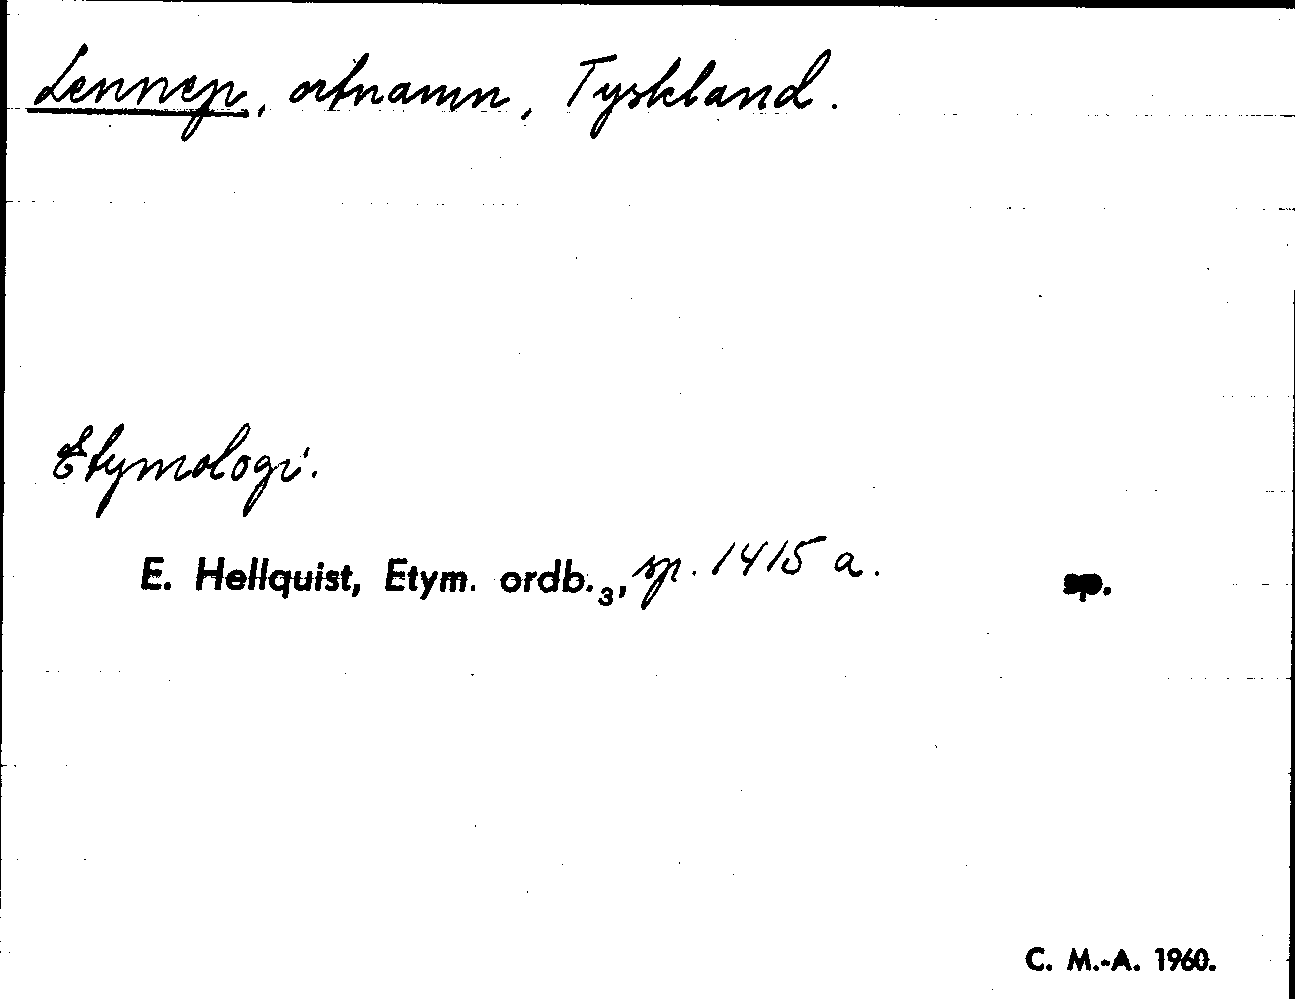 Lennep, ortnamn, Tyskland.
Etymologi.
E. Hellquist, Etym. ordb.₃, sp. 1415 a. sp.
C. M.-A. 1960.